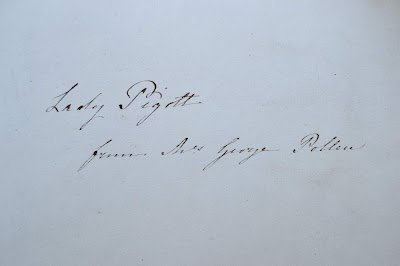 Lady Pigott
from Mrs George Pollen